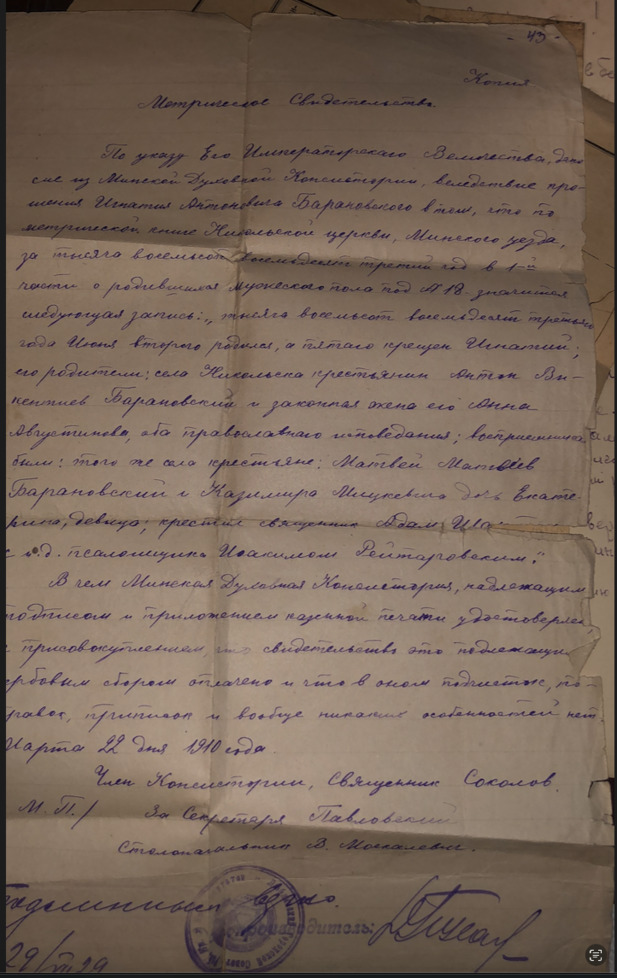 - 43 -
Копия
Метрическое Свидетельство.
По указу Его Императорскаго Величества, дано
сие из Минской Духовной Консистории, вследствие про-
шения Игнатия Антоновича Барановского в том, что по
метрической книге Никольской церкви, Минского уезда,
за тысяча восемьсот восемьдесят третий год в 1-й
части о родившихся мужеского пола под № 18 значится
следующая запись: „тысяча восемьсот восемьдесят третьяго
года Июня второго родился, а пятаго крещен Игнатий;
его родители: села Никольска крестьянин Антон Ви-
кентиев Барановский и законная жена его Анна
Августинова, оба православнаго исповедания; восприемника
были: того же села крестьяне: Матвей Матвеев
Барановский и Казимира Мицкевича дочь Екате-
рина, девица; крестил священник Адам
с и.д. псаломщика Иоакимом Рейтаровским."
В чем Минская Духовная Консистория, надлежащим
подписом и приложением казенной печати удостоверяет
с присовокуплением, что свидетельство это подлежащим
гербовым сбором оплачено и что в оном подчисток, по-
правок, приписок и вообще никаких особенностей нет.
Марта 22 дня 1910 года.
Член Консистории, Священник Соколов.
М. П./ За Секретаря Павловский
Столоначальник В. Москалевич.
подлинным верно.
производитель:
29/VII 29